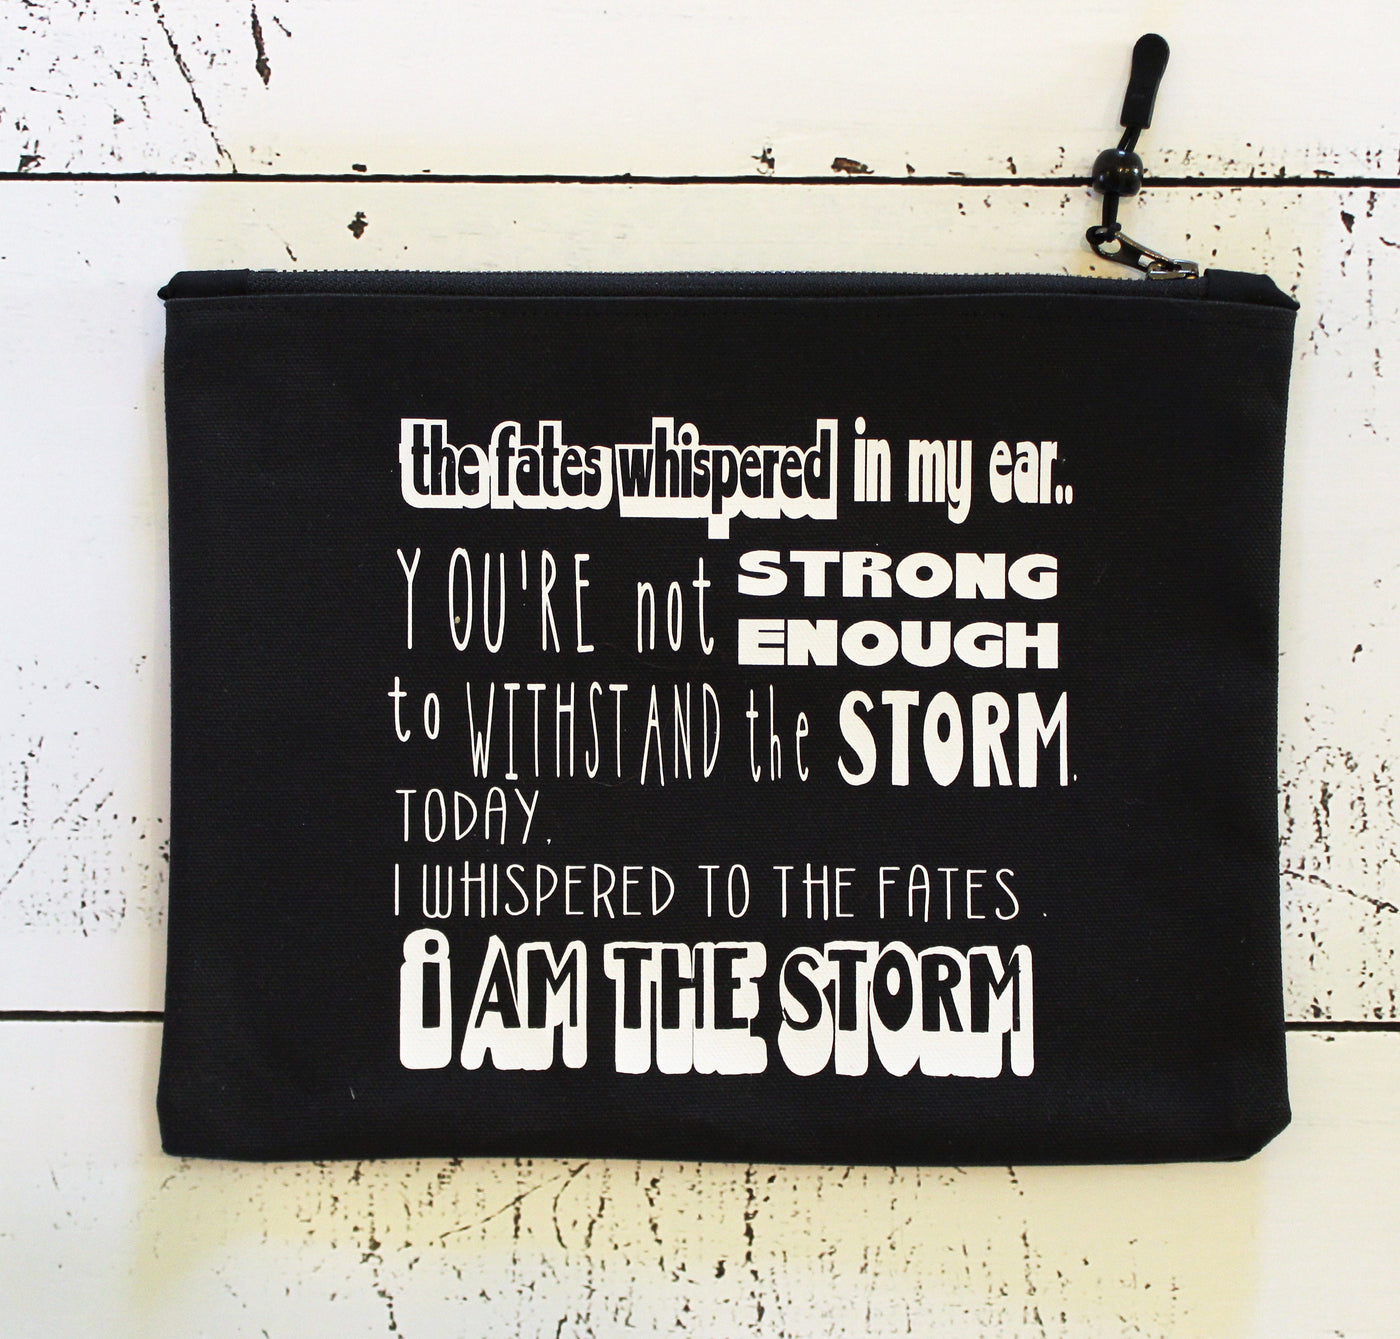 the fates whispered in my ear..
YOU'RE not STRONG
ENOUGH
to WITHSTAND the STORM.
TODAY.
I WHISPERED TO THE FATES .
i AM THE STORM